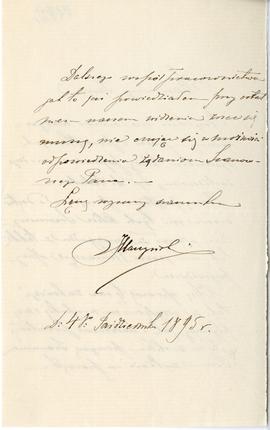 Dalszego współpracownictwa
jak to już powiedziałem przy ostat
niem naszem widzeniu zrzec się
muszę, nie czując się w możności
odpowiedzenia żądaniom Szanow-
nego Pana.
Łączę wyrazy szacunku
d. 4 Października 1895 r.